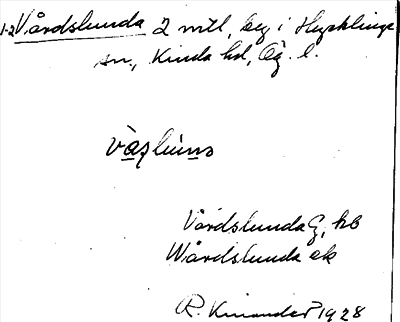 1-2 Vårdslunda 2 mtl, beg i Hycklinge
sn., Kinda hd, Ög. l.
Vårdslunda G, kb
Wårdslunda ek
R. Kinander 1928